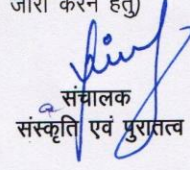 जारी करने हेतु)
संचालक
संस्कृति एवं पुरातत्व